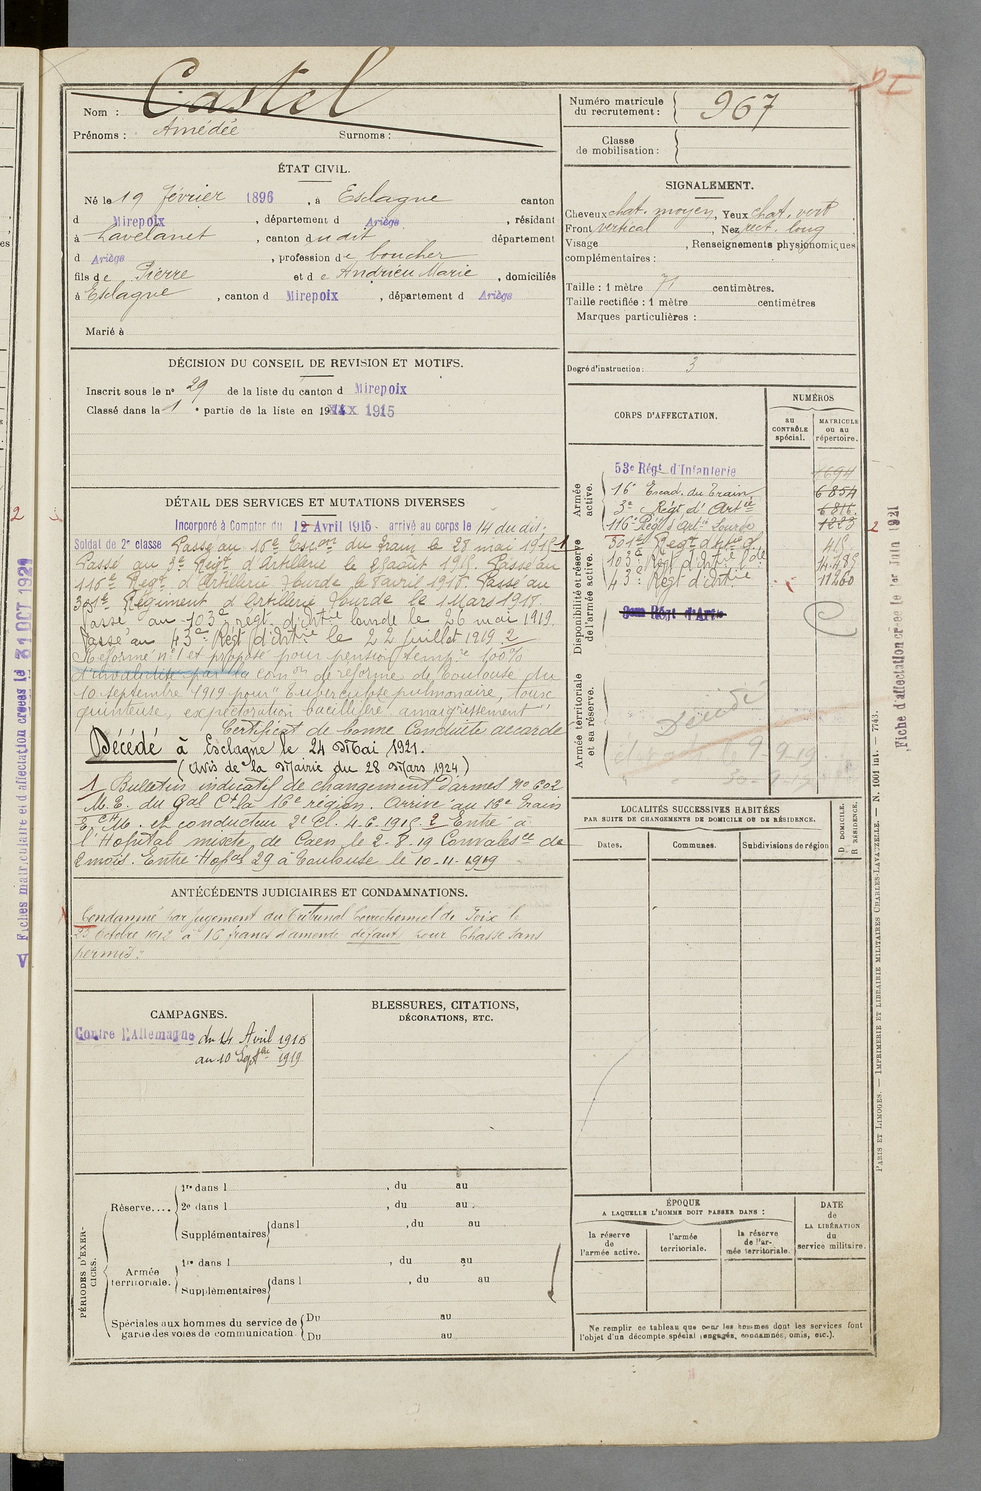 Castel
Nom :
Prénoms : Amédée Surnoms :
Numéro matricule du recrutement : 967
Classe de mobilisation :
ÉTAT CIVIL.
Né le 19 février 1896, à Esclagne canton
d Mirepoix, département d Ariège, résidant
à Lavelanet, canton du dit département
d Ariège, profession de boucher
fils de Pierre et de Andrieu Marie, domiciliés
à Esclagne, canton d Mirepoix, département d Ariège
Marié à
SIGNALEMENT.
Cheveux chat. moyen, Yeux chat. vert
Front vertical, Nez rect. long
Visage , Renseignements physionomiques
complémentaires :
Taille : 1 mètre 71 centimètres.
Taille rectifiée : 1 mètre centimètres
Marques particulières :
Degré d'instruction : 3
DÉCISION DU CONSEIL DE REVISION ET MOTIFS.
Inscrit sous le n° 29 de la liste du canton d Mirepoix
Classé dans la 1e partie de la liste en 1915
DÉTAIL DES SERVICES ET MUTATIONS DIVERSES
Incorporé à Compter du 12 Avril 1915 arrivé au corps le 14 du dit.
Soldat de 2e classe Passé au 16e Escon du train le 28 mai 1915 1
Passé au 3e Régt d'Artillerie le 2 août 1915. Passé au
116e Regt d'Artillerie Lourde le 8 avril 1918. Passé au
301e Régiment d'Artillerie Lourde le 1 Mars 1919.
Passé au 103e régt. d'artie lourde le 26 mai 1919.
Passé au 43e Régt d'artie le 22 juillet 1919. 2
Réformé n° 1 et proposé pour pension tempre 100%
d'invalidité par la comon de réforme de Toulouse du
10 septembre 1919 pour "Tuberculose pulmonaire, toux
quinteuse, expectoration bacillifère amaigrissement"
Certificat de bonne Conduite accordé
Décédé à Esclagne le 24 Mai 1921.
(Avis de la Mairie du 28 Mars 1924)
1 Bulletin indicatif de changement d'armes N° 602
M.E. du Gal Ct la 16e région. Arrivé au 16e Train
E. et M. et conducteur 2e Cl. 4-6-1915. 2 Entré à
l'Hôpital mixte de Caen le 2-8-19 Convalesce de
2 mois. Entré Hopal 29 à Toulouse le 10-11-1919
CORPS D'AFFECTATION.
NUMÉROS
au CONTRÔLE spécial.
MATRICULE ou au répertoire.
Armée active.
53e Régt d'Infanterie 1694
16e Escad. du Train 6854
3e Régt d'Artie 6816
116e Régt d'Artie Lourde 1283
Disponibilité et réserve de l'armée active.
301e Régt d'Artie Lde 415
103e Régt d'Artie Lde 4485
43e Régt d'Artie 11260
Armée territoriale et sa réserve.
Décédé
9-9-19
ANTÉCÉDENTS JUDICIAIRES ET CONDAMNATIONS.
Condamné par jugement du Tribunal Correctionnel de Foix le
Octobre 1913 à 16 francs d'amende défaut pour Chasse sans
permis.
CAMPAGNES.
Contre l'Allemagne du 14 Avril 1915
au 10 Septbre 1919
BLESSURES, CITATIONS,
DÉCORATIONS, ETC.
LOCALITÉS SUCCESSIVES HABITÉES
PAR SUITE DE CHANGEMENTS DE DOMICILE OU DE RÉSIDENCE.
Dates. Communes. Subdivisions de région
D DOMICILE.
R RÉSIDENCE.
PÉRIODES D'EXERCICES.
Réserve....
1re dans l , du au
2e dans l , du au
Supplémentaires dans l , du au
Armée territoriale.
1re dans l , du au
Supplémentaires dans l , du au
Spéciales aux hommes du service de
garde des voies de communication.
Du au
Du au
ÉPOQUE
A LAQUELLE L'HOMME DOIT PASSER DANS :
la réserve de l'armée active.
l'armée territoriale.
la réserve de l'armée territoriale.
DATE de LA LIBÉRATION du service militaire.
Ne remplir ce tableau que pour les hommes dont les services font
l'objet d'un décompte spécial (engagés, condamnés, omis, etc.).
PARIS ET LIMOGES. — IMPRIMERIE ET LIBRAIRIE MILITAIRES CHARLES-LAVAUZELLE. — N. 1001 int. — 7743.
Fiche d'affectation créée le 1er Juin 1921
Fiches matriculaire et d'affectation créées le 31 OCT 1921